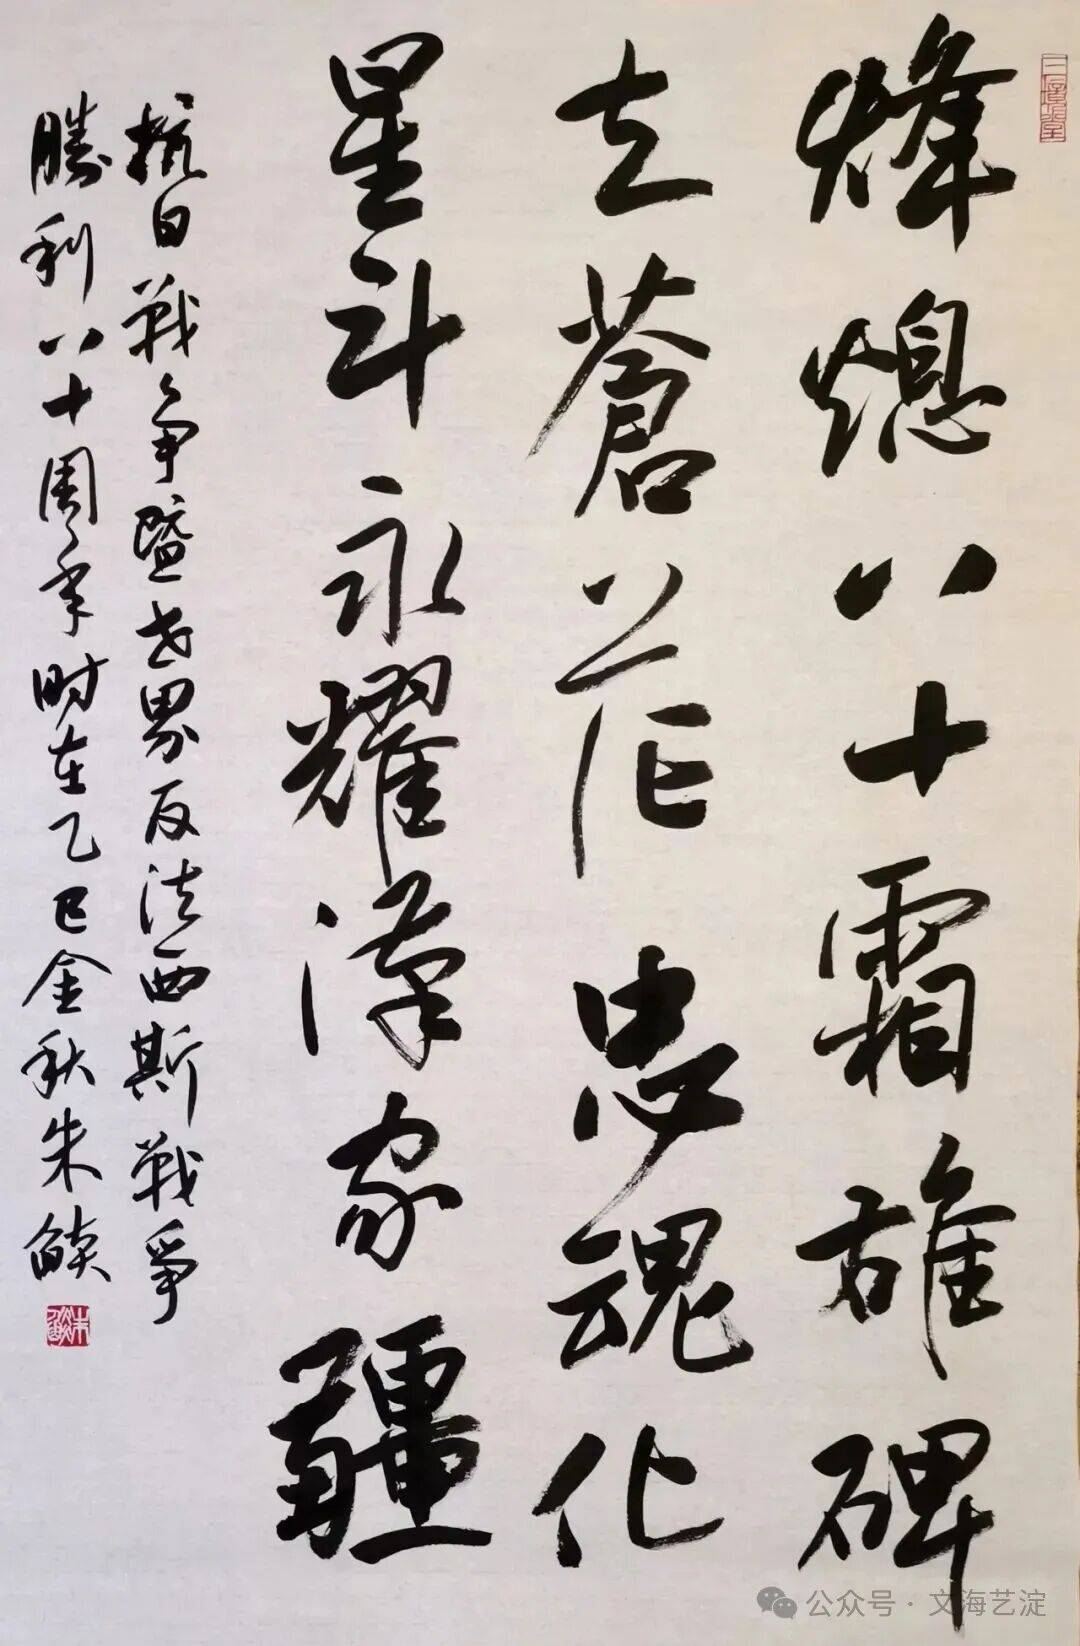 烽熄八十霜雄碑
立蒼茫忠魂化
星斗永耀漢家疆
抗日戰争暨世界反法西斯戰爭
勝利八十周年时在乙巳金秋朱燄
公众号·文海艺淀